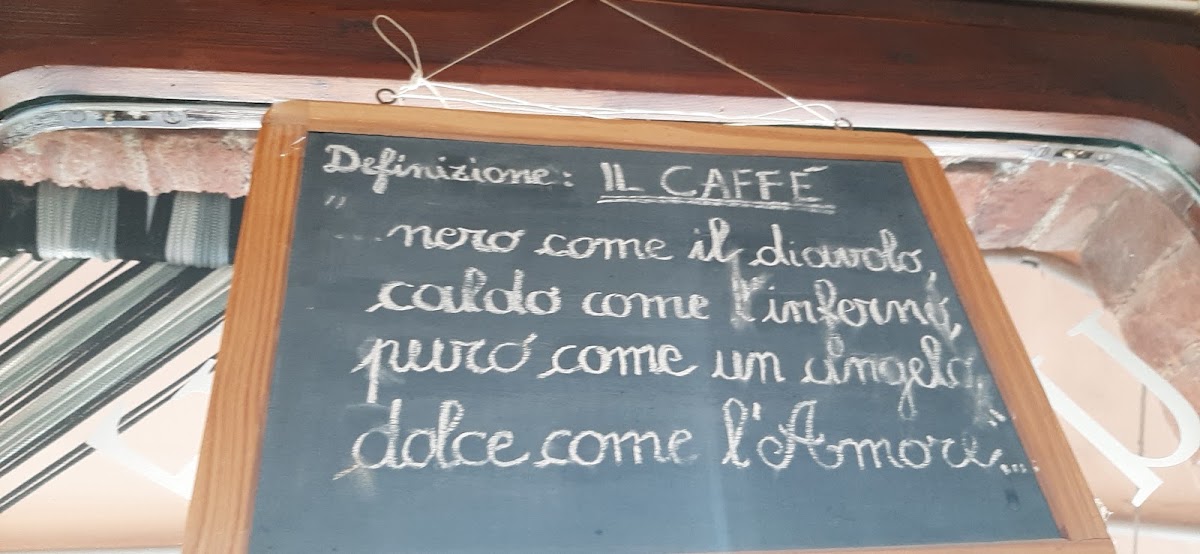 Definizione: IL CAFFÉ
"
...nero come il diavolo,
caldo come l'inferno,
puro come un angelo,
dolce come l'Amore"...